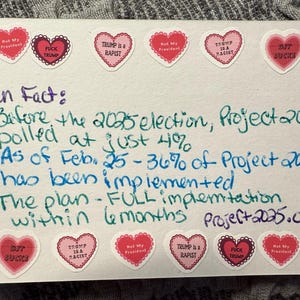 Not My President
FUCK TRUMP
TRUMP IS A RAPIST
Not My President
TRUMP IS A RACIST
SUCKS
n Fact:
Before the 2025 election, Project 20
polled at just 4%
As of Feb. 25 - 36% of Project 20
has been implemented
The plan - FULL implemntation
within 6 months
Project2025.o
SUCKS
TRUMP IS A RACIST
Not My President
TRUMP IS A RAPIST
FUCK TRUMP
Not My President